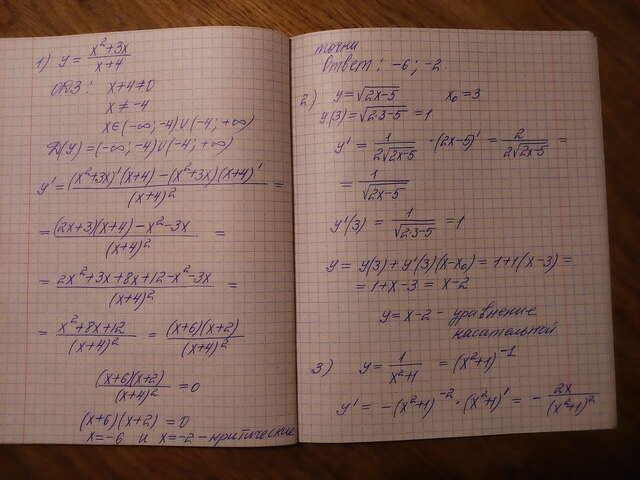 1) y = (x²+3x)/(x+4)
ОДЗ: x+4≠0
x ≠ -4
x∈(-∞;-4)∪(-4;+∞)
D(y) = (-∞;-4)∪(-4;+∞)
y' = ((x²+3x)'(x+4) - (x²+3x)(x+4)')/(x+4)² =
= ((2x+3)(x+4) - x² - 3x)/(x+4)² =
= (2x²+3x+8x+12-x²-3x)/(x+4)² =
= (x²+8x+12)/(x+4)² = ((x+6)(x+2))/(x+4)²
((x+6)(x+2))/(x+4)² = 0
(x+6)(x+2) = 0
x=-6 и x=-2 - критические
точки
Ответ: -6; -2.
2) y = √(2x-5) x₀ = 3
y(3) = √(2·3-5) = 1
y' = 1/(2√(2x-5)) · (2x-5)' = 2/(2√(2x-5)) =
= 1/√(2x-5)
y'(3) = 1/√(2·3-5) = 1
y = y(3) + y'(3)(x-x₀) = 1+1(x-3) =
= 1+x-3 = x-2
y = x-2 - уравнение
касательной
3) y = 1/(x²+1) = (x²+1)⁻¹
y' = -(x²+1)⁻² · (x²+1)' = - 2x/(x²+1)²